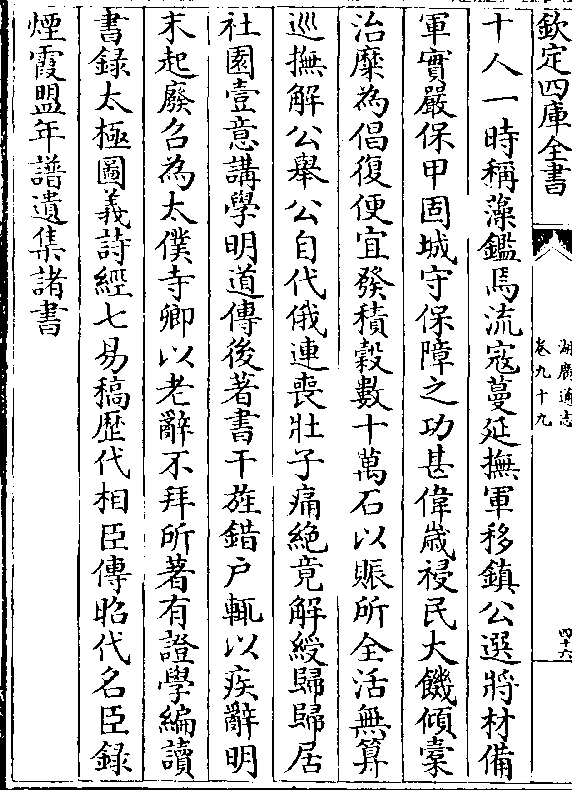 欽定四庫全書
湖廣通志
卷九十九
四十六
十人一時稱藻鑑焉流寇蔓延撫軍移鎮公選將材備
軍實嚴保甲固城守保障之功甚偉歳祲民大饑傾橐
治糜為倡復便宜發積穀數十萬石以賑所全活無算
巡撫解公舉公自代俄連喪壯子痛絶竟解綬歸歸居
社園壹意講學明道傳後著書干旌錯户輒以疾辭明
末起廢召為太僕寺卿以老辭不拜所著有證學編讀
書錄太極圖義詩經七易稿歷代相臣傳昭代名臣錄
煙霞盟年譜遺集諸書